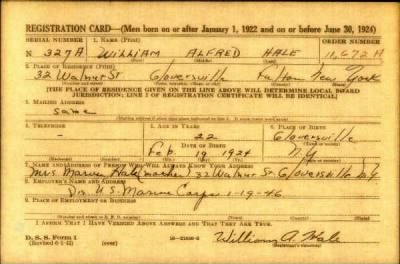 REGISTRATION CARD—(Men born on or after January 1, 1922 and on or before June 30, 1924)
SERIAL NUMBER 1. Name (Print) ORDER NUMBER
N 327A WILLIAM ALFRED HALE 11,672A
2. Place of Residence (Print)
32 Walnut St Gloversville Fulton New York
[THE PLACE OF RESIDENCE GIVEN ON THE LINE ABOVE WILL DETERMINE LOCAL BOARD JURISDICTION; LINE 2 OF REGISTRATION CERTIFICATE WILL BE IDENTICAL]
3. Mailing Address
same
4. Telephone 5. Age in Years 6. Place of Birth
- 22 Gloversville
Date of Birth
Feb. 19 1924 N.Y.
7. Name and Address of Person Who Will Always Know Your Address
Mrs. 32 Walnut St Gloversville N.Y.
8. Employer's Name and Address
Dis. U.S. Marine Corps 1-19-46
9. Place of Employment or Business
I Affirm That I Have Verified Above Answers and That They Are True.
D. S. S. Form 1
(Revised 6-1-42) (over)
William A. Hale